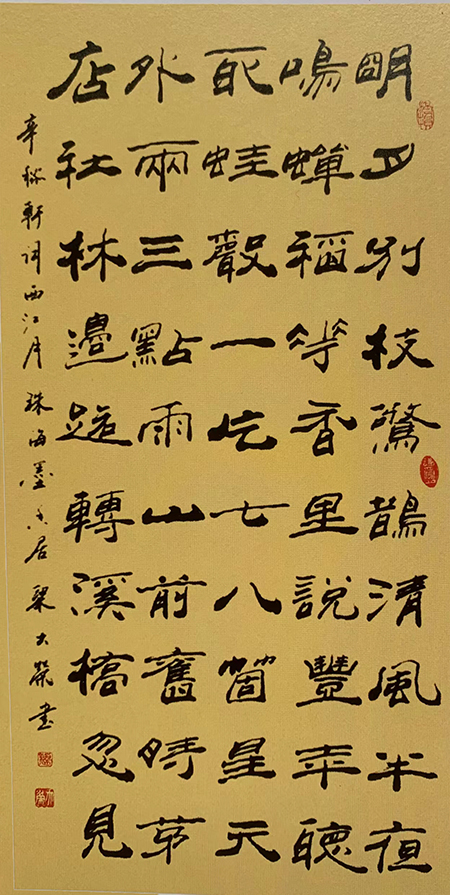 明月別枝驚鵲清風半夜
鳴蟬稻花香里說豐年聽
取蛙聲一片七八箇星天
外兩三點雨山前舊時茅
店社林邊路轉溪橋忽見
辛稼軒词西江月 珠海墨居梁大書